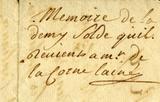 Memoire de la
demy Solde quil
revient a mr. de
la Corne laine